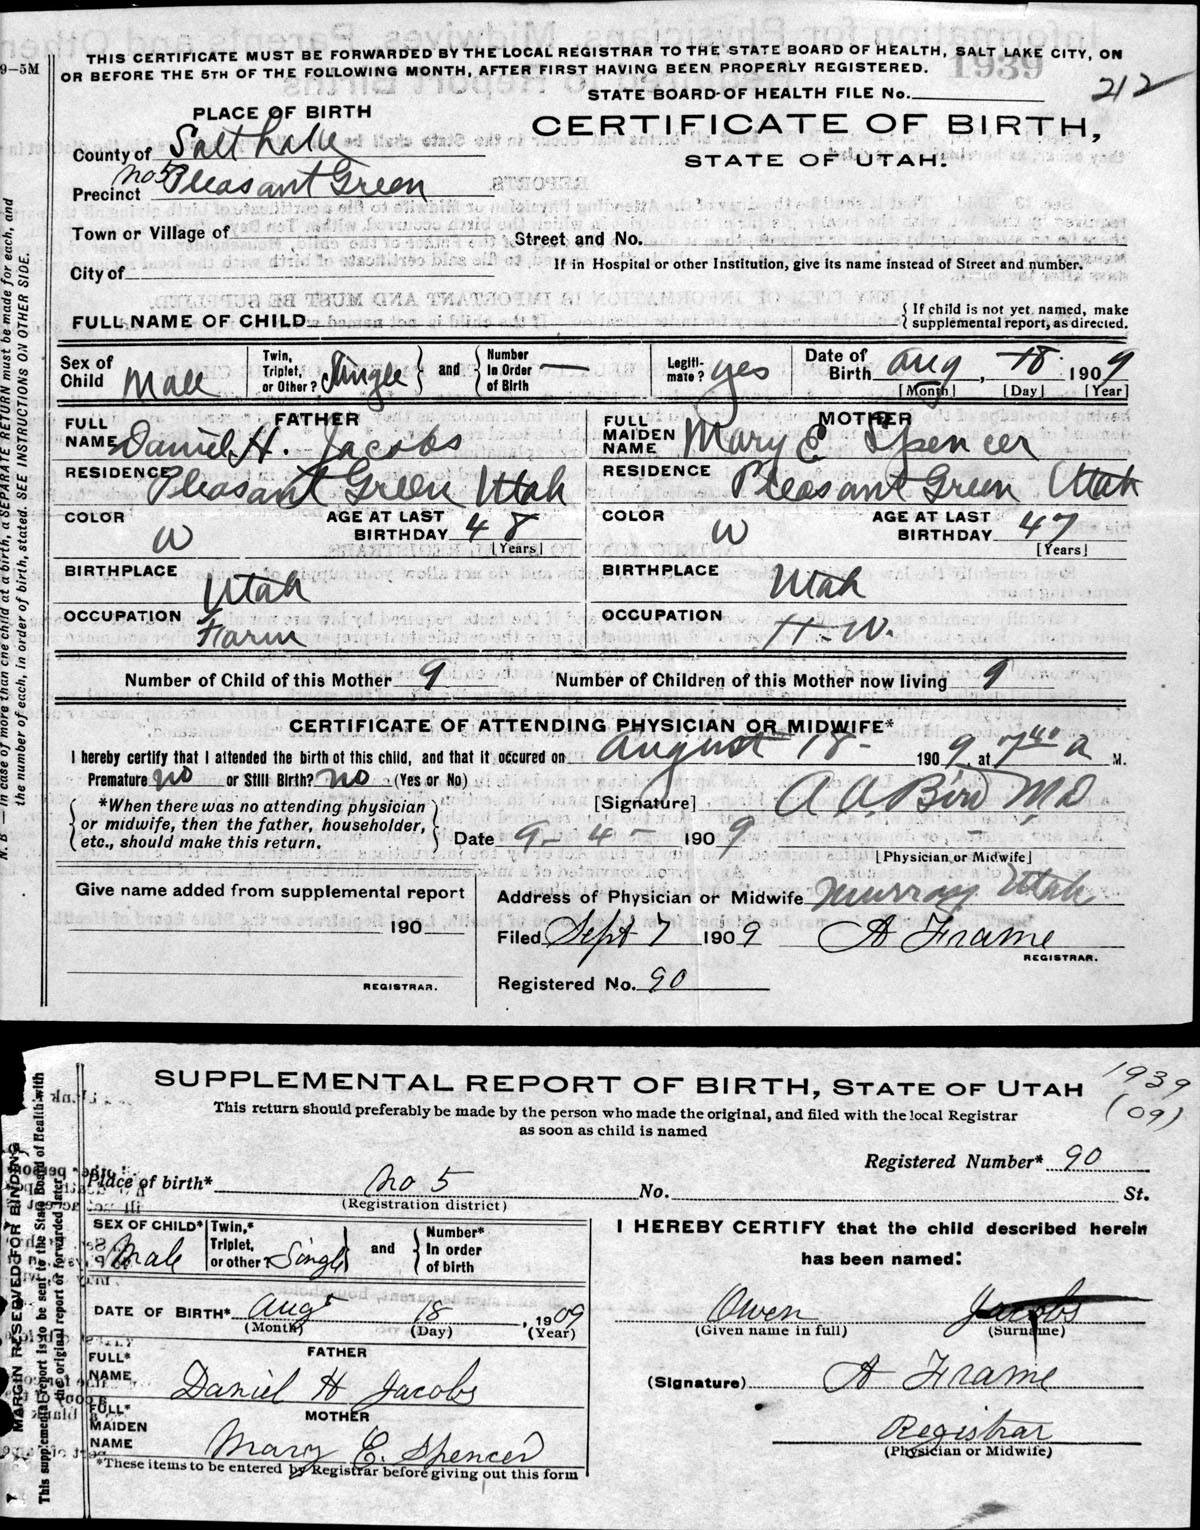 THIS CERTIFICATE MUST BE FORWARDED BY THE LOCAL REGISTRAR TO THE STATE BOARD OF HEALTH, SALT LAKE CITY, ON
9-5M
OR BEFORE THE 5TH OF THE FOLLOWING MONTH, AFTER FIRST HAVING BEEN PROPERLY REGISTERED. 1939
STATE BOARD OF HEALTH FILE No. 212
PLACE OF BIRTH
CERTIFICATE OF BIRTH,
County of Salt Lake
STATE OF UTAH.
Precinct No 5 Pleasant Green
Town or Village of
Street and No.
City of
If in Hospital or other Institution, give its name instead of Street and number.
FULL NAME OF CHILD
{ If child is not yet named, make supplemental report, as directed.
Sex of Child Male Twin, Triplet, or Other? Single } and { Number In Order of Birth — Legitimate? yes Date of Birth Aug, 18 1909
[Month] [Day] [Year]
FATHER MOTHER
FULL NAME Daniel H. Jacobs FULL MAIDEN NAME Mary E Spencer
RESIDENCE Pleasant Green Utah RESIDENCE Pleasant Green Utah
COLOR W AGE AT LAST BIRTHDAY 48 [Years] COLOR W AGE AT LAST BIRTHDAY 47 [Years]
BIRTHPLACE Utah BIRTHPLACE Utah
OCCUPATION Farm OCCUPATION H-W.
Number of Child of this Mother 9 Number of Children of this Mother now living 9
CERTIFICATE OF ATTENDING PHYSICIAN OR MIDWIFE*
I hereby certify that I attended the birth of this child, and that it occured on August 18- 1909, at 7 40 a M.
Premature no or Still Birth? no (Yes or No)
[Signature] A A Bird MD
*When there was no attending physician
or midwife, then the father, householder,
etc., should make this return.
Date 9-4- 1909
[Physician or Midwife]
Give name added from supplemental report
190
REGISTRAR.
Address of Physician or Midwife Murray Utah
Filed Sept 7 1909 A Frame
REGISTRAR.
Registered No. 90
N. B — In case of more than one child at a birth, a SEPARATE RETURN must be made for each, and
the number of each, in order of birth, stated. SEE INSTRUCTIONS ON OTHER SIDE.
SUPPLEMENTAL REPORT OF BIRTH, STATE OF UTAH
1939
(09)
This return should preferably be made by the person who made the original, and filed with the local Registrar
as soon as child is named
Registered Number* 90
Place of birth* No 5 No. St.
(Registration district)
SEX OF CHILD* Male Twin,* Triplet, or other Single } and { Number* In order of birth
I HEREBY CERTIFY that the child described herein
has been named:
DATE OF BIRTH* Aug 18, 1909
(Month) (Day) (Year)
Owen Jacobs
(Given name in full) (Surname)
FATHER
FULL* NAME Daniel H Jacobs
(Signature) A Frame
MOTHER
FULL* MAIDEN NAME Mary E. Spencer
Registrar
(Physician or Midwife)
*These items to be entered by Registrar before giving out this form
MARGIN RESERVED FOR BINDING
This supplemental report is to be sent to the State Board of Health with
the original report or forwarded later